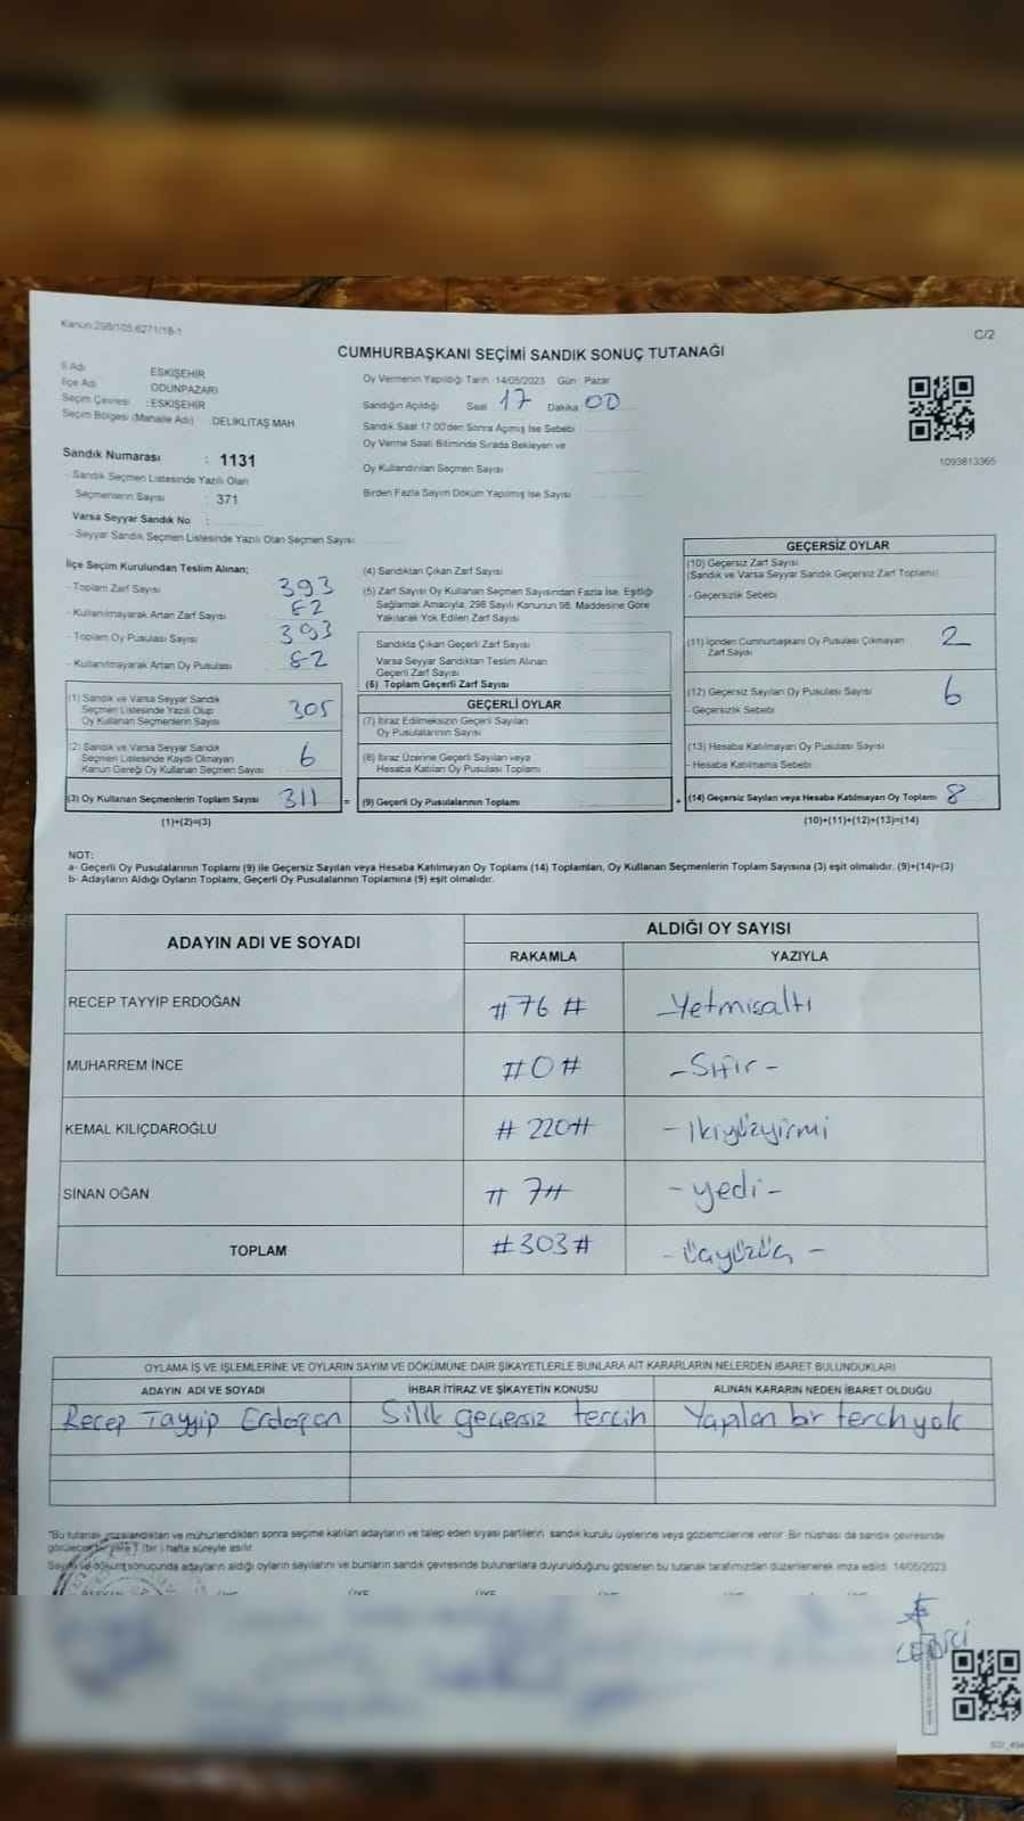 Kanun:298/105,6271/18-1
C/2
CUMHURBAŞKANI SEÇİMİ SANDIK SONUÇ TUTANAĞI
İl Adı : ESKİŞEHİR
İlçe Adı : ODUNPAZARI
Seçim Çevresi : ESKİŞEHİR
Seçim Bölgesi (Mahalle Adı) : DELİKLİTAŞ MAH
Sandık Numarası : 1131
Sandık Seçmen Listesinde Yazılı Olan
Seçmenlerin Sayısı : 371
Varsa Seyyar Sandık No :
- Seyyar Sandık Seçmen Listesinde Yazılı Olan Seçmen Sayısı
Oy Vermenin Yapıldığı Tarih :14/05/2023 Gün : Pazar
Sandığın Açıldığı Saat 17 Dakika 00
Sandık Saat 17:00'den Sonra Açılmış İse Sebebi
Oy Verme Saati Bitiminde Sırada Bekleyen ve
Oy Kullandırılan Seçmen Sayısı
Birden Fazla Sayım Döküm Yapılmış İse Sayısı
1093813365
İlçe Seçim Kurulundan Teslim Alınan;
- Toplam Zarf Sayısı 393
- Kullanılmayarak Artan Zarf Sayısı 82
- Toplam Oy Pusulası Sayısı 393
- Kullanılmayarak Artan Oy Pusulası 82
(1) Sandık ve Varsa Seyyar Sandık
Seçmen Listesinde Yazılı Olup
Oy Kullanan Seçmenlerin Sayısı 305
(2) Sandık ve Varsa Seyyar Sandık
Seçmen Listesinde Kaydı Olmayan
Kanun Gereği Oy Kullanan Seçmen Sayısı 6
(3) Oy Kullanan Seçmenlerin Toplam Sayısı 311 =
(1)+(2)=(3)
(4) Sandıktan Çıkan Zarf Sayısı
(5) Zarf Sayısı Oy Kullanan Seçmen Sayısından Fazla İse, Eşitliği
Sağlamak Amacıyla, 298 Sayılı Kanunun 98. Maddesine Göre
Yakılarak Yok Edilen Zarf Sayısı
Sandıkta Çıkan Geçerli Zarf Sayısı
Varsa Seyyar Sandıktan Teslim Alınan
Geçerli Zarf Sayısı
(6) Toplam Geçerli Zarf Sayısı
GEÇERLİ OYLAR
(7) İtiraz Edilmeksizin Geçerli Sayılan
Oy Pusulalarının Sayısı
(8) İtiraz Üzerine Geçerli Sayılan veya
Hesaba Katılan Oy Pusulası Toplamı
(9) Geçerli Oy Pusulalarının Toplamı +
GEÇERSİZ OYLAR
(10) Geçersiz Zarf Sayısı
(Sandık ve Varsa Seyyar Sandık Geçersiz Zarf Toplamı)
- Geçersizlik Sebebi
(11) İçinden Cumhurbaşkanı Oy Pusulası Çıkmayan
Zarf Sayısı 2
(12) Geçersiz Sayılan Oy Pusulası Sayısı 6
- Geçersizlik Sebebi
(13) Hesaba Katılmayan Oy Pusulası Sayısı
- Hesaba Katılmama Sebebi
(14) Geçersiz Sayılan veya Hesaba Katılmayan Oy Toplamı 8
(10)+(11)+(12)+(13)=(14)
NOT:
a- Geçerli Oy Pusulalarının Toplamı (9) ile Geçersiz Sayılan veya Hesaba Katılmayan Oy Toplamı (14) Toplamları, Oy Kullanan Seçmenlerin Toplam Sayısına (3) eşit olmalıdır. (9)+(14)=(3)
b- Adayların Aldığı Oyların Toplamı, Geçerli Oy Pusulalarının Toplamına (9) eşit olmalıdır.
ADAYIN ADI VE SOYADI ALDIĞI OY SAYISI
RAKAMLA YAZIYLA
RECEP TAYYİP ERDOĞAN #76# -Yetmişaltı
MUHARREM İNCE #0# -Sıfır-
KEMAL KILIÇDAROĞLU #220# -İkiyüzyirmi
SİNAN OĞAN #7# -yedi-
TOPLAM #303# -üçyüzüç-
OYLAMA İŞ VE İŞLEMLERİNE VE OYLARIN SAYIM VE DÖKÜMÜNE DAİR ŞİKAYETLERLE BUNLARA AİT KARARLARIN NELERDEN İBARET BULUNDUKLARI
ADAYIN ADI VE SOYADI İHBAR İTİRAZ VE ŞİKAYETİN KONUSU ALINAN KARARIN NEDEN İBARET OLDUĞU
Recep Tayyip Erdoğan Silik geçersiz tercih Yapılan bir terch yok
"Bu tutanak imzalandıktan ve mühürlendikten sonra seçime katılan adayların ve talep eden siyasi partilerin sandık kurulu üyelerine veya gözlemcilerine verilir. Bir nüshası da sandık çevresinde
görülecek bir yere 1 (bir) hafta süreyle asılır.
Sayım ve döküm sonucunda adayların aldığı oyların sayılarını ve bunların sandık çevresinde bulunanlara duyurulduğunu gösteren bu tutanak tarafımızdan düzenlenerek imza edildi. 14/05/2023
ÜYE ÜYE